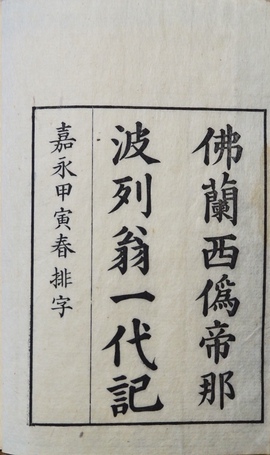 佛蘭西偽帝那
波列翁一代記
嘉永甲寅春排字